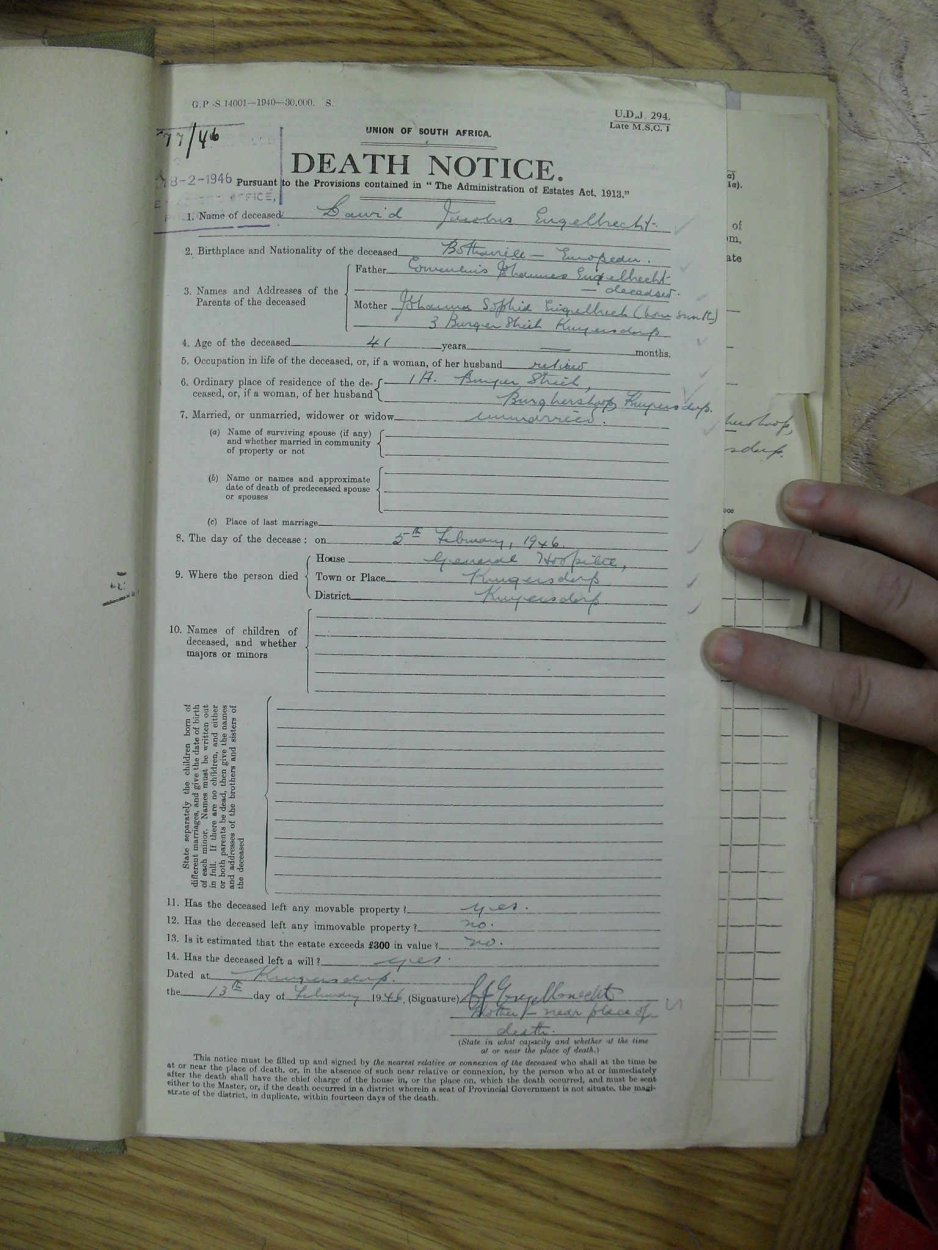 G.P.-S.14001—1940—30,000. S.
U.D.J. 294.
Late M.S.C. 1
UNION OF SOUTH AFRICA.
77/46
DEATH NOTICE.
8-2-1946
Pursuant to the Provisions contained in "The Administration of Estates Act, 1913."
1. Name of deceased David Jacobus Engelbrecht.
2. Birthplace and Nationality of the deceased Bothaville — European.
3. Names and Addresses of the Parents of the deceased
Father Johannes Engelbrecht
— deceased.
Mother Johanna Sophia Engelbrecht (born Smit)
3 Burger Street Krugersdorp
4. Age of the deceased 41 years — months.
5. Occupation in life of the deceased, or, if a woman, of her husband retired
6. Ordinary place of residence of the de- 1A. Burger Street,
ceased, or, if a woman, of her husband Burghershoop, Krugersdorp.
7. Married, or unmarried, widower or widow unmarried.
(a) Name of surviving spouse (if any)
and whether married in community
of property or not
(b) Name or names and approximate
date of death of predeceased spouse
or spouses
(c) Place of last marriage
8. The day of the decease: on 5th February, 1946.
9. Where the person died
House General Hospital,
Town or Place Krugersdorp
District Krugersdorp
10. Names of children of
deceased, and whether
majors or minors
State separately the children born of
different marriages, and give the date of birth
of each minor. Names must be written out
in full. If there are no children, and either
or both parents be dead, then give the names
and addresses of the brothers and sisters of
the deceased
11. Has the deceased left any movable property? yes.
12. Has the deceased left any immovable property? no.
13. Is it estimated that the estate exceeds £300 in value? no.
14. Has the deceased left a will? yes.
Dated at Krugersdorp.
the 13th day of February 1946. (Signature) Engelbrecht
Mother — near place of
death.
(State in what capacity and whether at the time
at or near the place of death.)
This notice must be filled up and signed by the nearest relative or connexion of the deceased who shall at the time be
at or near the place of death, or, in the absence of such near relative or connexion, by the person who at or immediately
after the death shall have the chief charge of the house in, or the place on, which the death occurred, and must be sent
either to the Master, or, if the death occurred in a district wherein a seat of Provincial Government is not situate, the magi-
strate of the district, in duplicate, within fourteen days of the death.